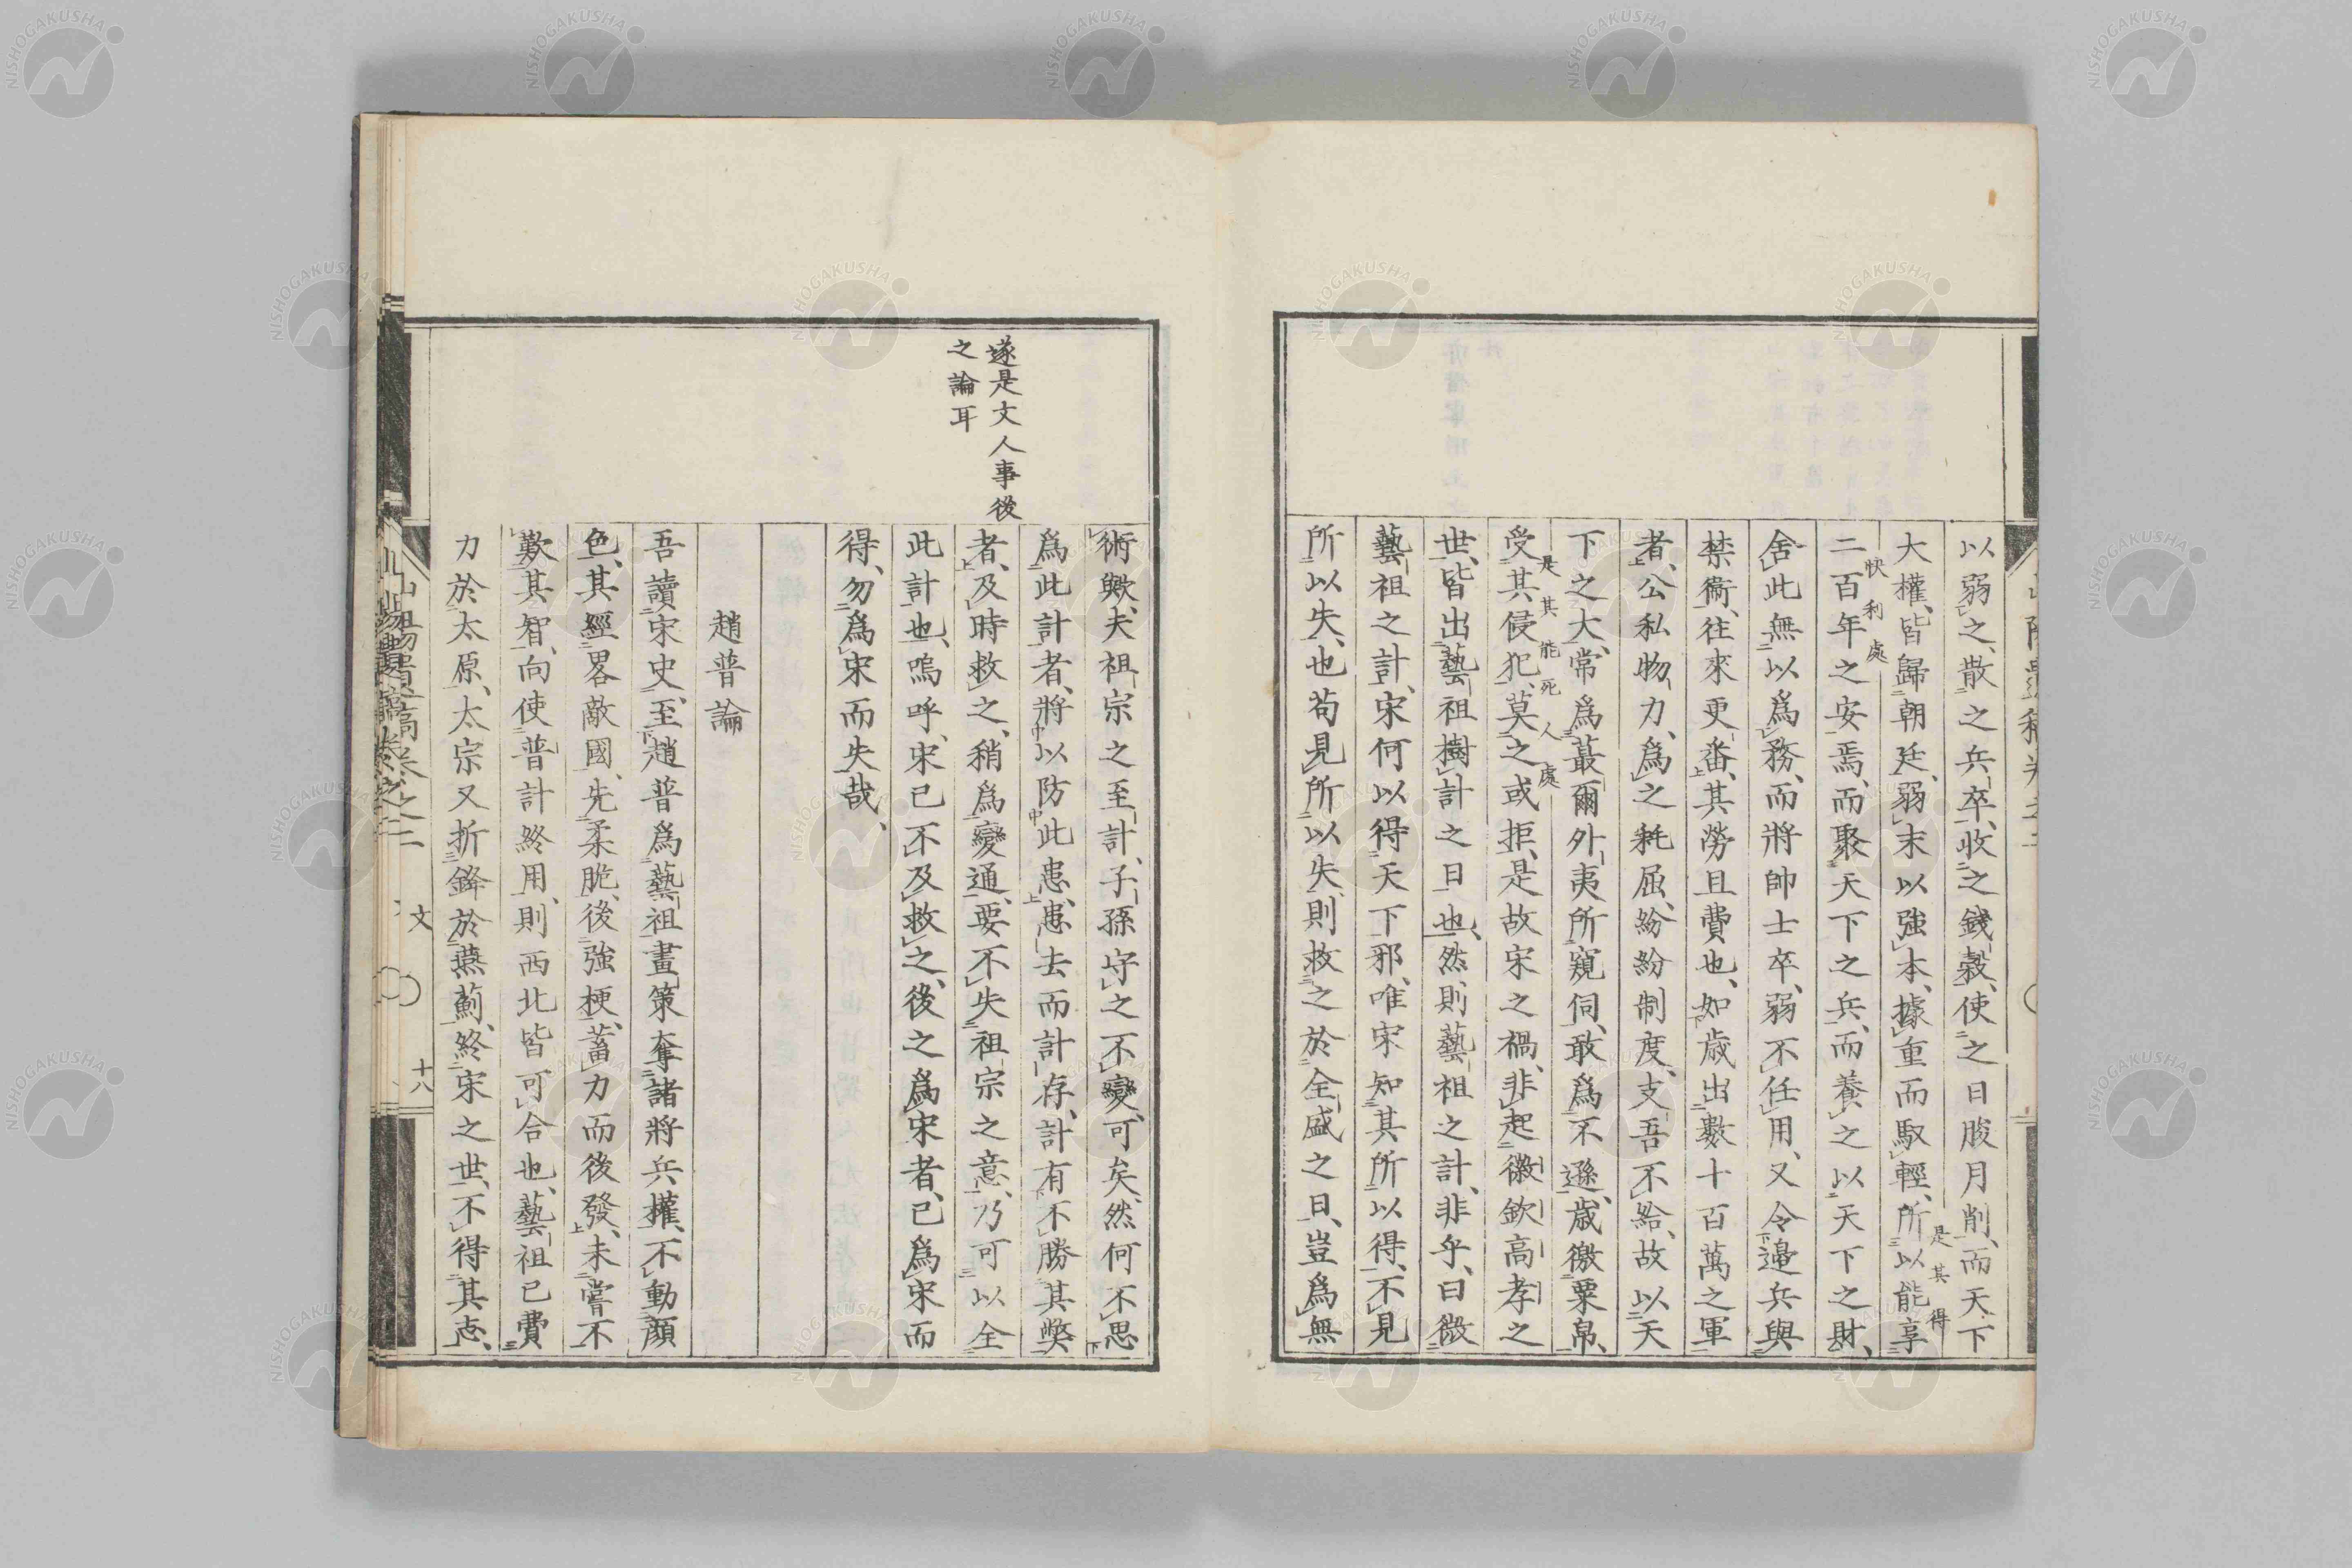 以弱之、散之兵卒、收之錢穀、使之日朘月削、而天下
是其得
大權、皆歸朝廷、弱末以強本、據重而馭輕、所以能享
快利處
二百年之安焉、而聚天下之兵、而養之以天下之財、
舍此無以爲務、而將帥士卒、弱不任用、又令邊兵與
禁衞、往來更番、其勞且費也、如歲出數十百萬之軍
者、公私物力、爲之耗屈、紛紛制度、支吾不給、故以天
下之大、常爲蕞爾外夷所窺伺、敢爲不遜、歲徼粟帛、
是其能死人處
受其侵犯、莫之或拒、是故宋之禍、非起徽欽高孝之
世、皆出藝祖樹計之日也、然則藝祖之計、非乎、曰微
藝祖之計、宋何以得天下邪、唯宋知其所以得、不見
所以失、也苟見所以失、則救之於全盛之日、豈爲無
遂是文人事後
之論耳
術歟、夫祖宗之至計、子孫守之、不變、可矣、然何不思
爲此計者、將以防此患、患去而計存、計有不勝其獘
者、及時救之、稍爲變通、要不失祖宗之意、乃可以全
此計也、嗚呼、宋已不及救之、後之爲宋者、已爲宋而
得、勿爲宋而失哉、
趙普論
吾讀宋史、至趙普爲藝祖畫策奪諸將兵權、不動顔
色、其經畧敵國、先柔脆、後強梗、蓄力而後發、未嘗不
歎其智、向使普計終用、則西北皆可合也、藝祖已費
力於太原、太宗又折鋒於燕薊、終宋之世、不得其志、
文
十八